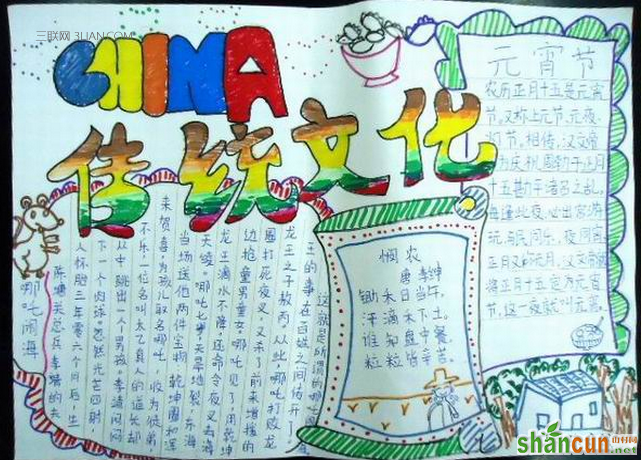 三联网 3LIAN.COM
CHINA
传统文化
元宵节
农历正月十五是元宵
节,又称上元节,元夜,
灯节。相传,汉文帝
为庆祝周勃于正月
十五勘平诸吕之乱,
每逢此夜,必出宫游
玩,与民同乐,夜同宵
正月又称元月,汉文帝就
将正月十五定为元宵
节,这一夜就叫元宵。
悯农
唐 李绅
锄禾日当午,
汗滴禾下土。
谁知盘中餐,
粒粒皆辛苦。
哪吒闹海
陈塘关总兵李靖的夫
人怀胎三年零六个月后,生
下一个肉球。忽然光芒四射
从中跳出一个男孩。李靖闷闷
不乐一位名叫太乙真人的道长却
来贺喜,为孩儿取名哪吒,收为徒弟
当场送他两件宝物 乾坤圈和浑
天绫。哪吒七岁,天旱地裂,东海
龙王滴水不降,还命令夜叉去海
边抢童男童女。哪吒见了,用乾坤
圈打死夜叉,又杀了前来增援的
龙王之子敖丙。从此,哪吒打败龙
王的事在百姓之间传开了。
这就是所谓的哪吒闹海
shancun